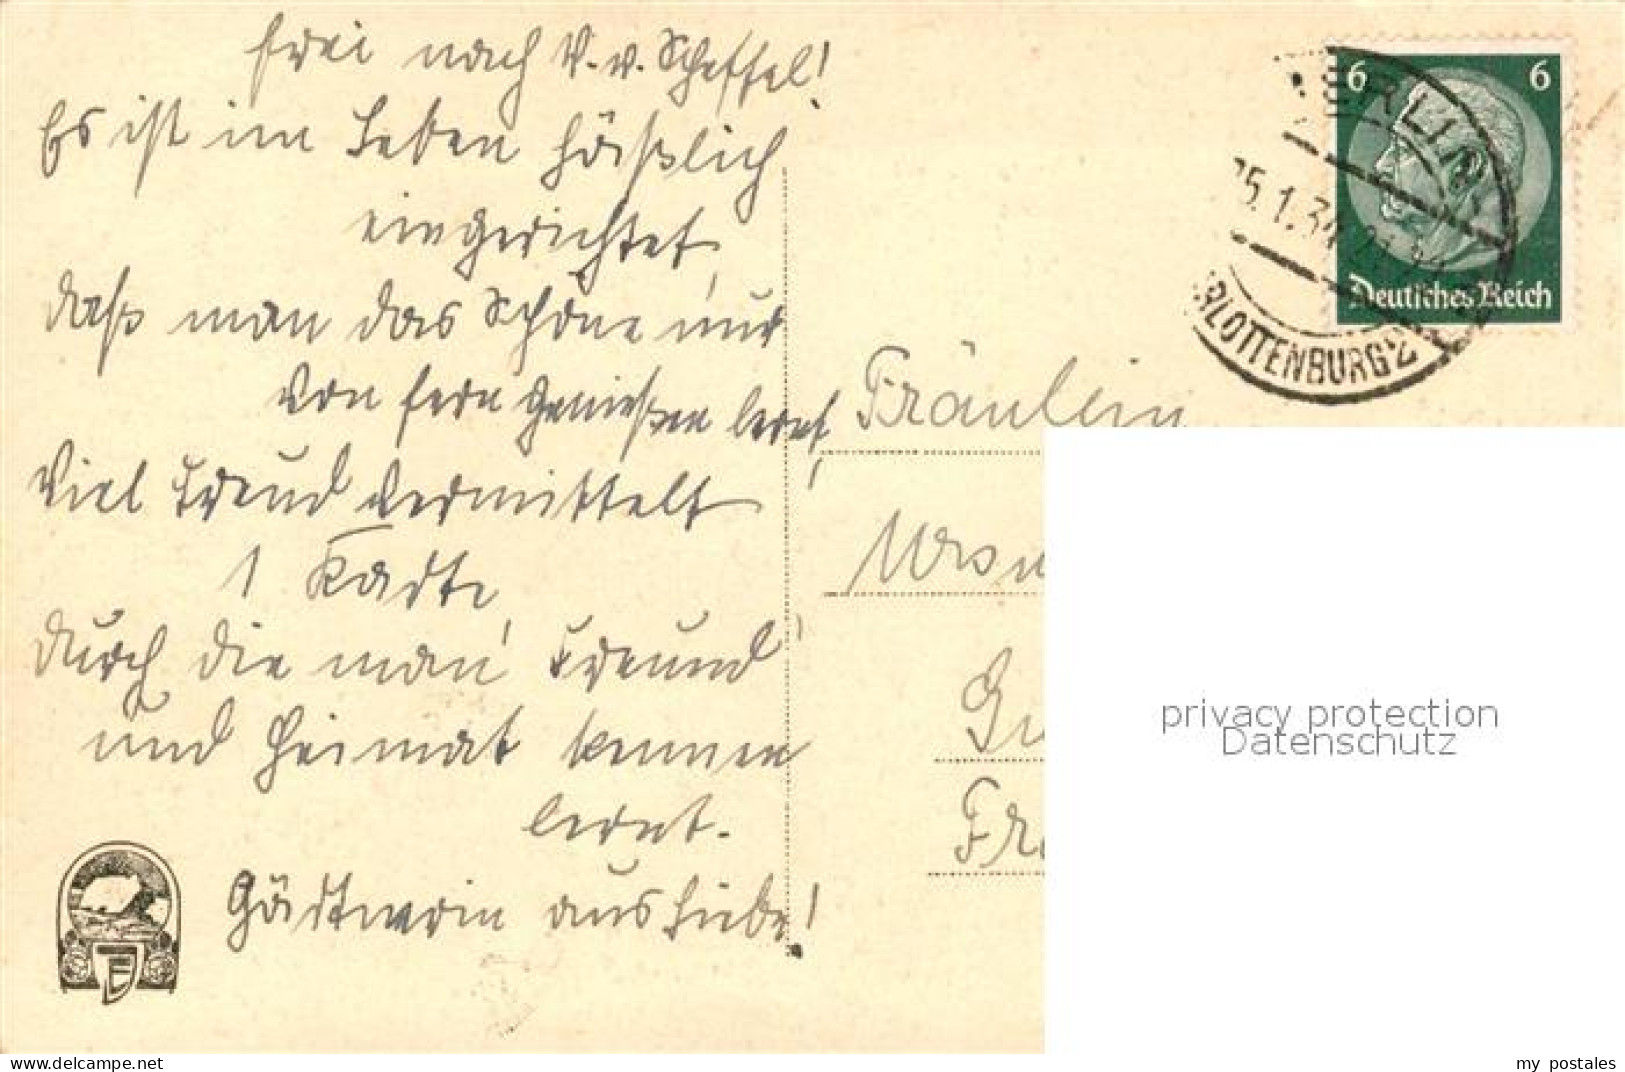 frei nach V. v. Scheffel!
Es ist im Leben häßlich
eingerichtet,
daß man das Schöne nur
von fern genießen lernt,
Viel Freud vermittelt
1 Karte,
durch die man Freund
und Heimat kennen
lernt.
Gärtnerin aus Liebe!
Fräulein
6 6
Deutsches Reich
BERLIN
25.1.34
RLOTTENBURG 2
privacy protection
Datenschutz
my postales